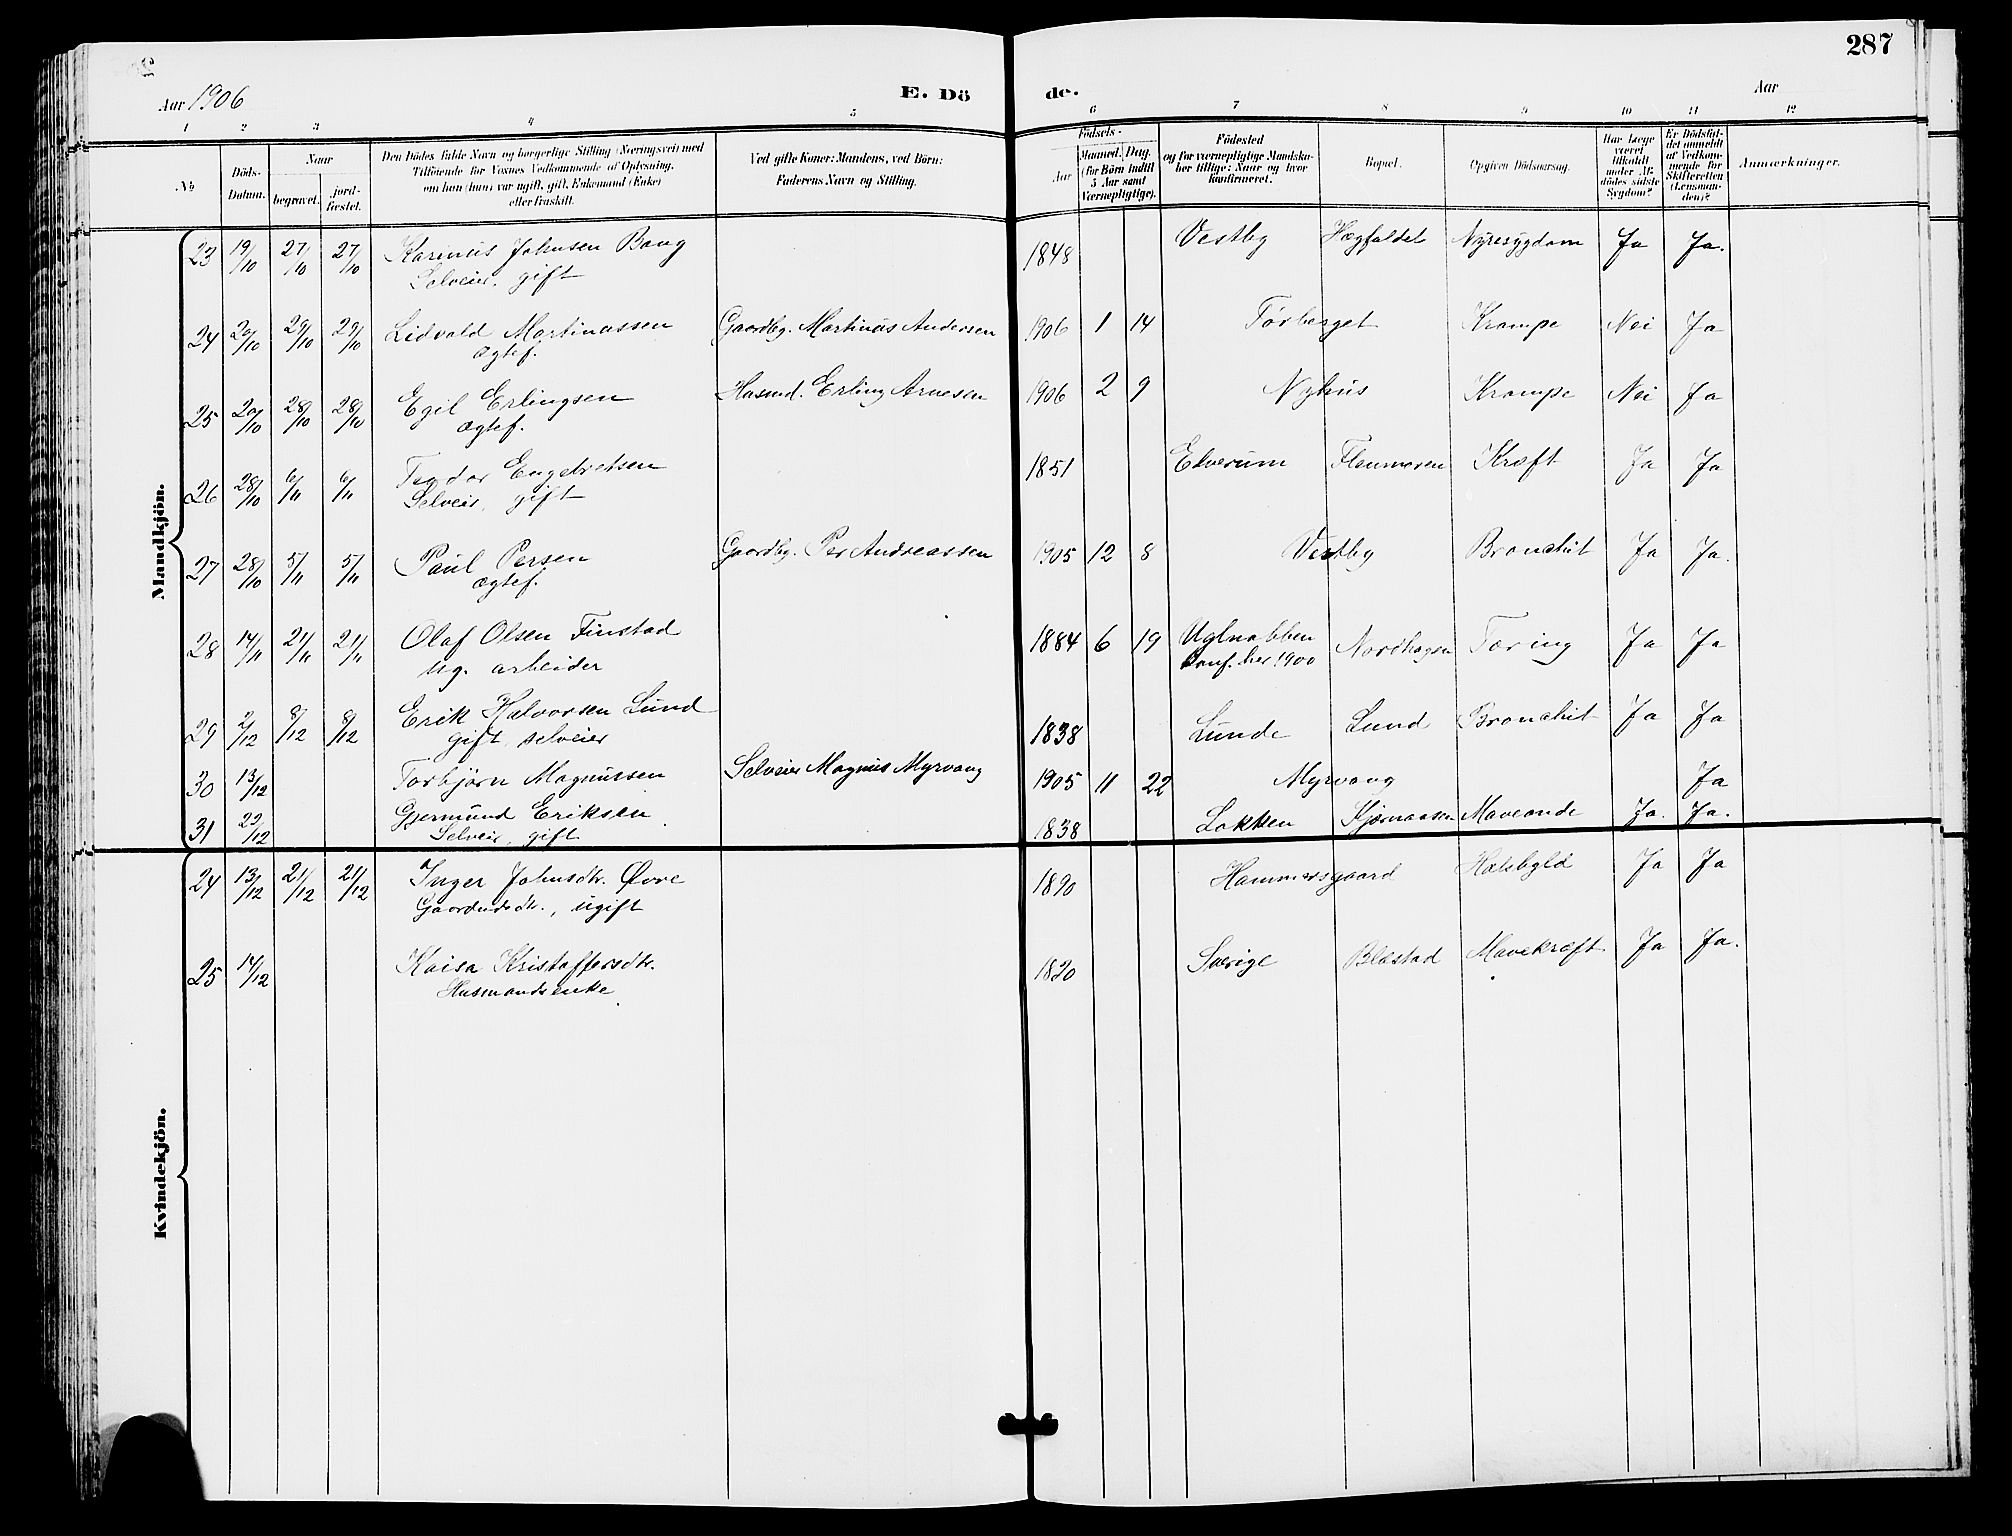 287
Aar 1906
E. Dö
de.
Aar
1 2 3 4 5 6 7 8 9 10 11 12
No
Döds-
Datum.
Naar
begravet.
jord-
fæstet.
Den Dödes fulde Navn og borgerlige Stilling (Næringsvei) med
Tilföiende for Voxnes Vedkommende af Oplysning,
om han (hun) var ugift, gift, Enkemand (Enke)
eller fraskilt.
Ved gifte Koner: Mandens, ved Börn:
Faderens Navn og Stilling.
Födsels-
Aar
Maaned. Dag.
(for Börn indtil
5 Aar samt
Værnepligtige).
Födested
og for værnepligtige Mandska-
ber tillige: Naar og hvor
konfirmeret.
Bopæl.
Opgiven Dödsaarsag.
Har Læge
været
tilkaldt
under Af-
dödes sidste
Sygdom?
Er Dödsfal-
det anmeldt
af Vedkom-
mende for
Skifteretten
(Lensman-
den)?
Anmærkninger.
Mandkjön.
23 19/10 27/10 27/10 Karinus Johnsen Bang 1848 Vestby Hægfaldet Nyresygdom Ja Ja.
Selveier, gift
24 20/10 29/10 29/10 Lidvald Martinussen Gaardbg. Martinus Andersen 1906 1 14 Törberget Krampe Nei Ja
ægtef.
25 20/10 28/10 28/10 Egil Erlingsen Husmd. Erling Arnesen 1906 2 9 Nyhus Krampe Nei Ja
ægtef.
26 28/10 6/11 6/11 Teodor Engebretsen 1851 Elverum Flenmoen Kræft Ja Ja
Selveier, gift
27 28/10 5/11 5/11 Paul Persen Gaardbg. Per Andreassen 1905 12 8 Vestby Bronchit Ja Ja.
ægtef.
28 14/11 21/11 21/11 Olaf Olsen Finstad 1884 6 19 Uglnabben Nordhagen Tæring Ja Ja
ug. arbeider konf. her 1900
29 2/12 8/12 8/12 Erik Halvorsen Lund 1838 Lunde Lund Bronchit Ja Ja
gift, selveier
30 13/12 Torbjørn Magnussen Selveier Magnus Myrvang 1905 11 22 Myrvang Ja
31 /12 Gjermund Eriksen 1838 Løkken Maveonde Ja. Ja.
Selveier, gift
Kvindekjön.
24 13/12 21/12 21/12 Inger Johnsdtr. Øvre 1890 Hammersgaard Halsbyld Ja Ja
ugift
25 14/12 Kaisa Kristoffersdtr. 1820 Sverige Blæstad Mavekræft Ja Ja.
Husmandsenke